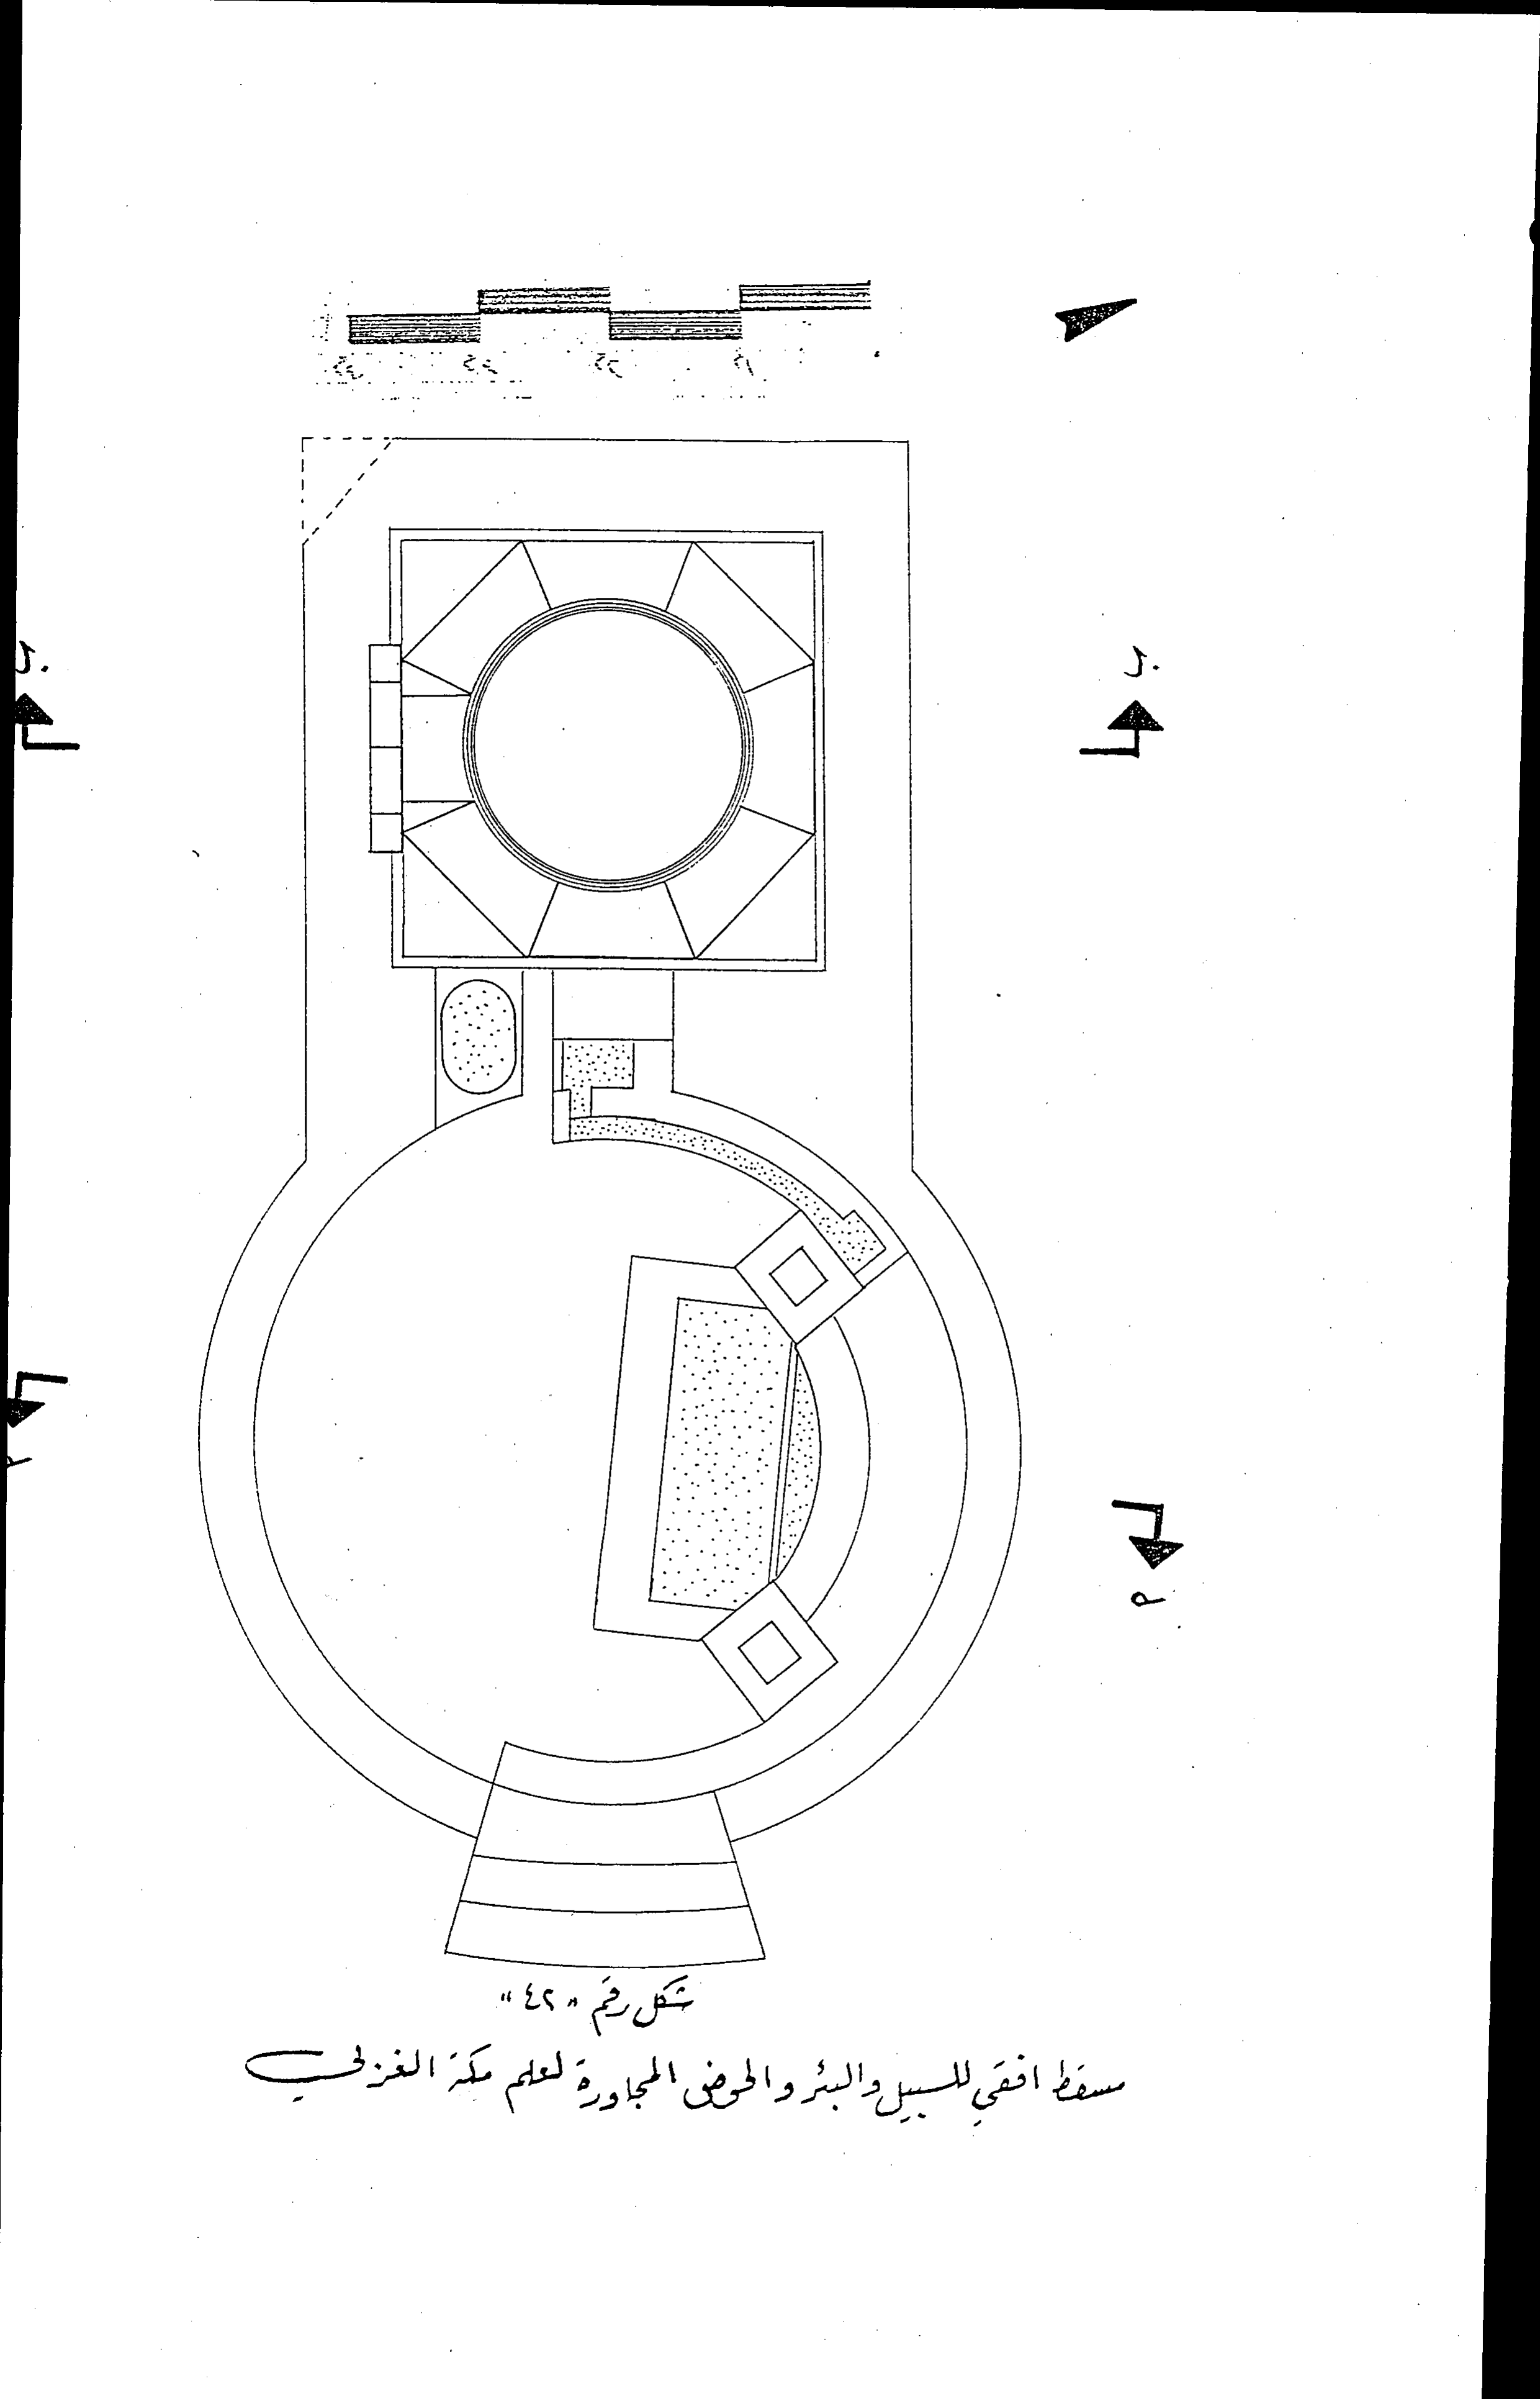 ١م ٢م ٣م ٤م
ب ب
م م
شكل رقم "٤٢"
مسقط افقي للسبيل والبئر والحوض المجاورة لعلم مكة الغزلي